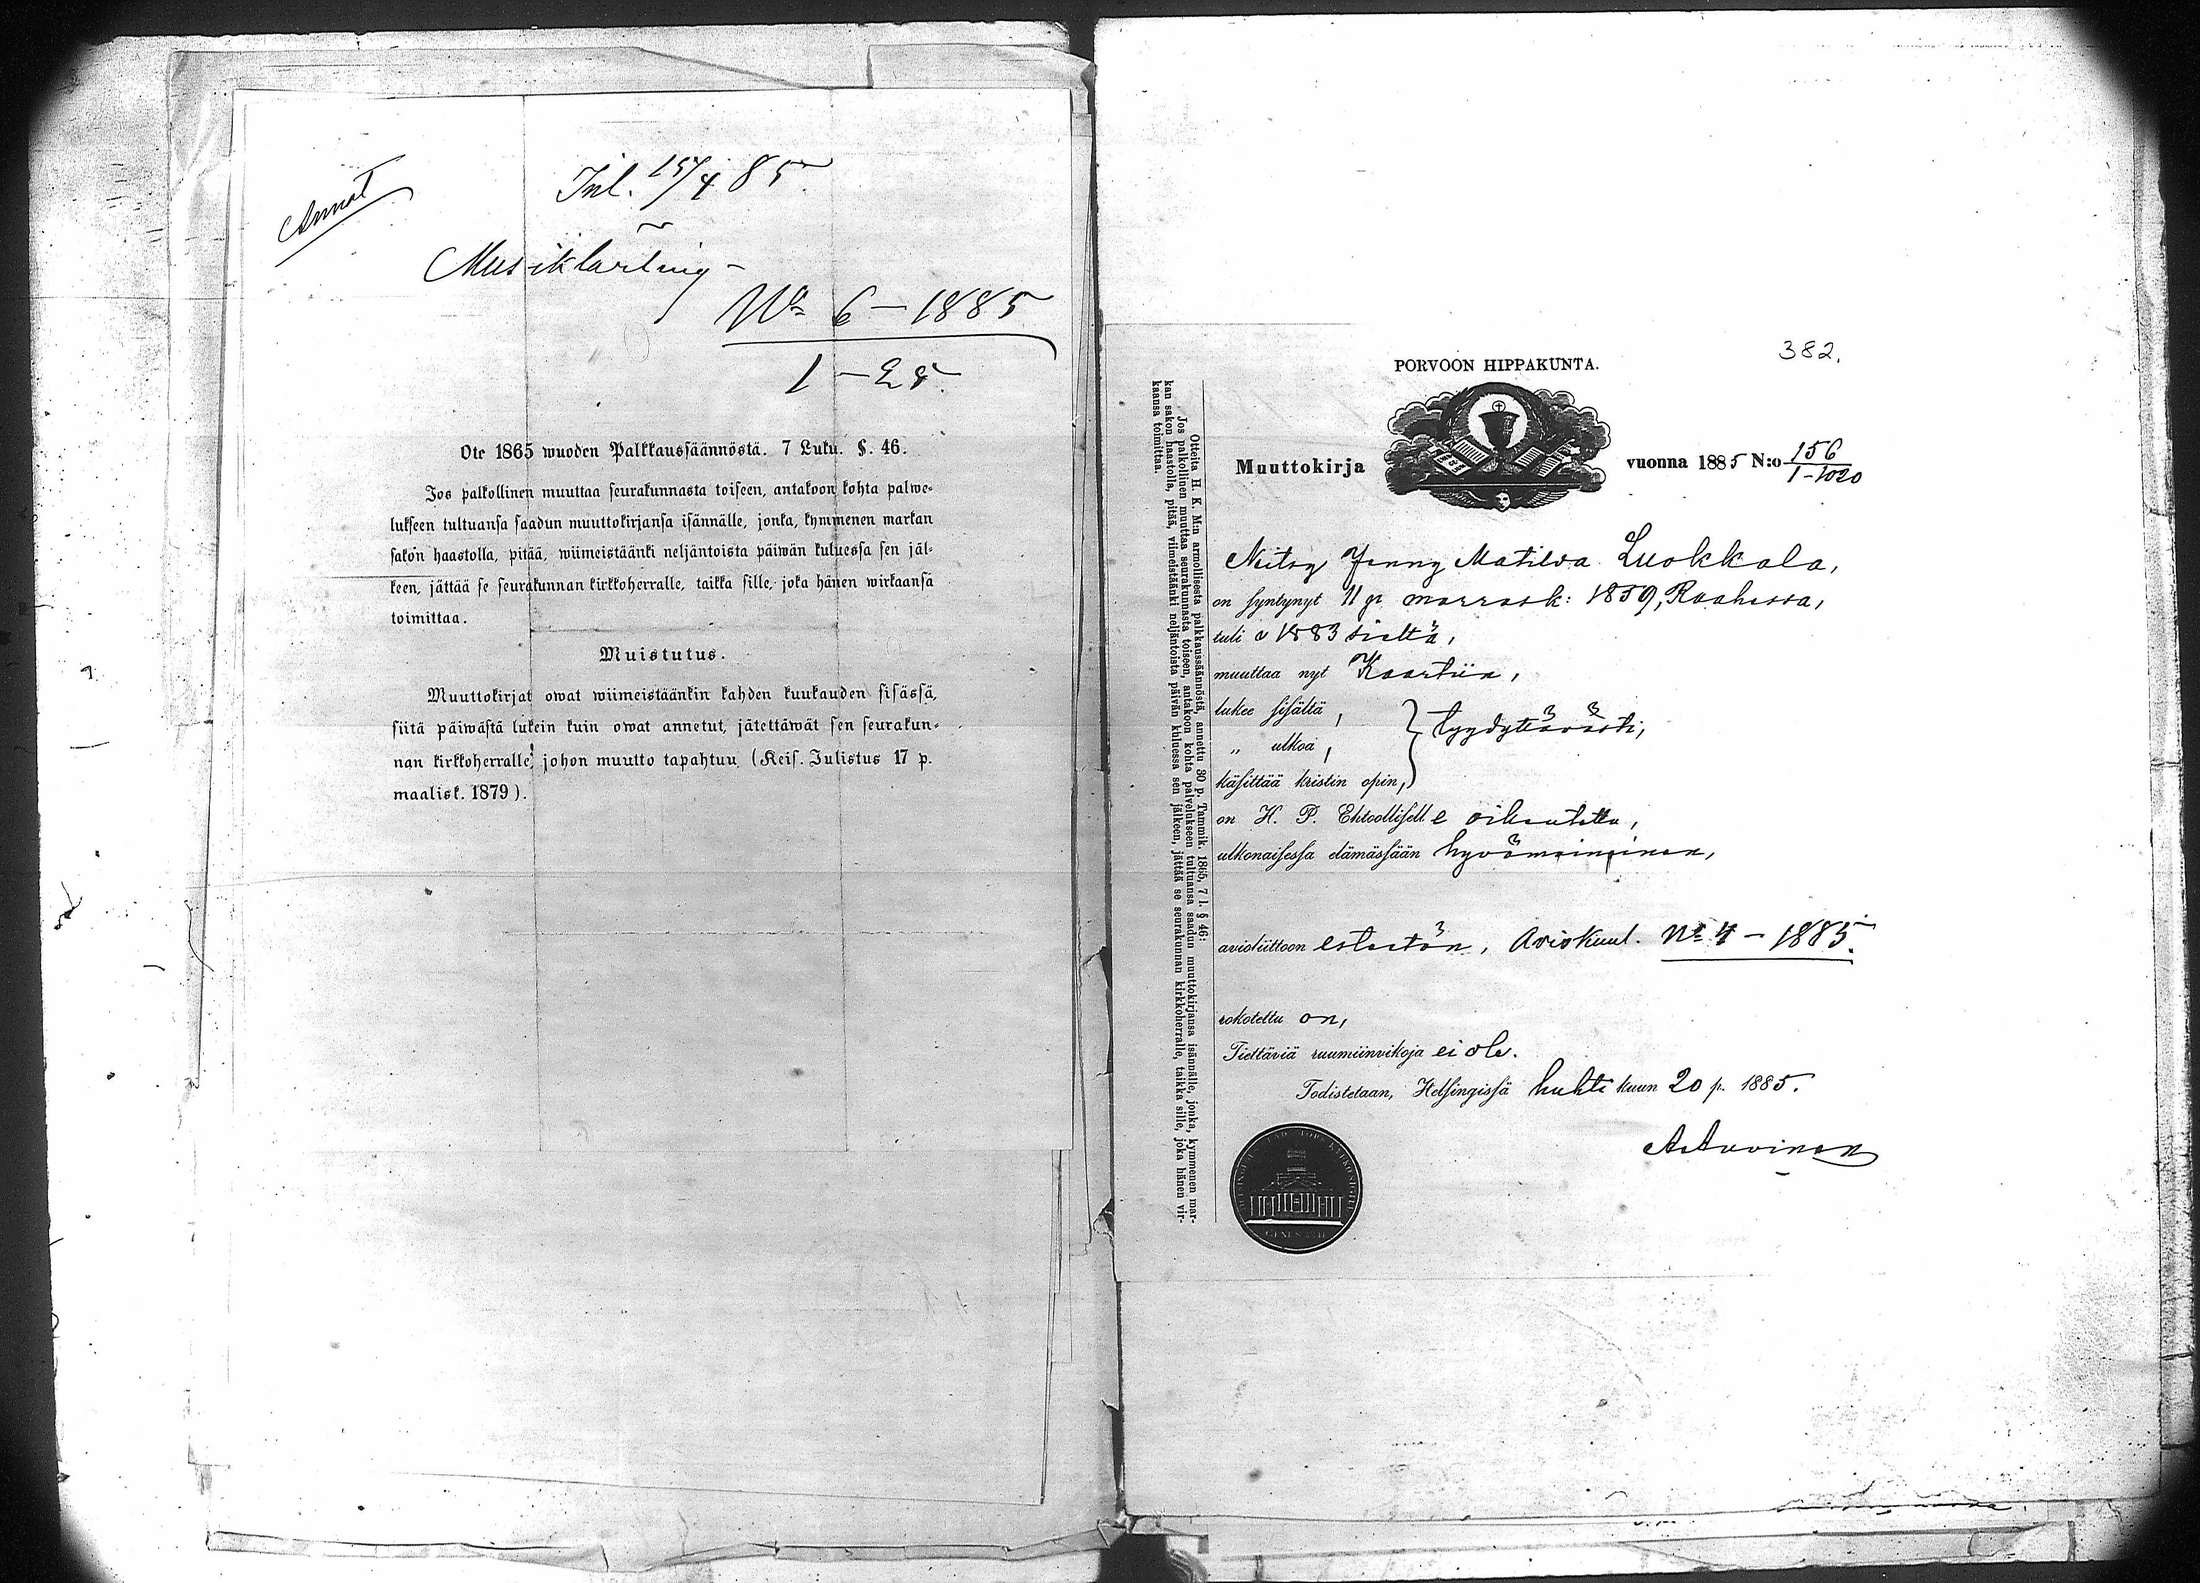 Annot
Inl. 15/4 85.
Musiklärling -
No 6 - 1885
1 - 28.
Ote 1865 wuoden Palkkaussäännöstä. 7 Luku. §. 46.
Jos palkollinen muuttaa seurakunnasta toiseen, antakoon kohta palwe-
lukseen tultuansa saadun muuttokirjansa isännälle, jonka, kymmenen markan
sakon haastolla, pitää, wiimeistäänki neljäntoista päiwän kuluessa sen jäl-
keen, jättää se seurakunnan kirkkoherralle, taikka sille, joka hänen wirkaansa
toimittaa.
Muistutus.
Muuttokirjat owat wiimeistäänkin kahden kuukauden sisässä,
siitä päiwästä lukein kuin owat annetut, jätettäwät sen seurakun-
nan kirkkoherralle, johon muutto tapahtuu (Keis. Julistus 17 p.
maalisk. 1879).
382.
PORVOON HIPPAKUNTA.
Muuttokirja vuonna 1885 N:o 156
1-1020
Neitsy Jenny Matilda Luokkala,
on syntynyt 11 p marrask: 1859, Raahessa,
tuli v 1883 sieltä,
muuttaa nyt Kaartiin,
lukee sisältä,
„ ulkoa, } tyydyttävästi,
käsittää kristin opin,
on H. P. Ehtoollisell e oikeutettu,
ulkonaisessa elämässään hyvämaininen,
avioliittoon esteetön, Aviokuul. No 4 - 1885.
rokotettu on,
Tiettäviä ruumiinvikoja ei ole.
Todistetaan, Helsingissä huhti kuun 20 p. 1885.
Otteita H. K. M:n armollisesta palkkaussäännöstä, annettu 30 p. Tammik. 1865, 7 l. § 46:
Jos palkollinen muuttaa seurakunnasta toiseen, antakoon kohta palvelukseen tultuansa saadun muuttokirjansa isännälle, jonka, kymmenen mar-
kan sakon haastolla, pitää, viimeistäänki neljäntoista päivän kuluessa sen jälkeen, jättää se seurakunnan kirkkoherralle, taikka sille, joka hänen vir-
kaansa toimittaa.